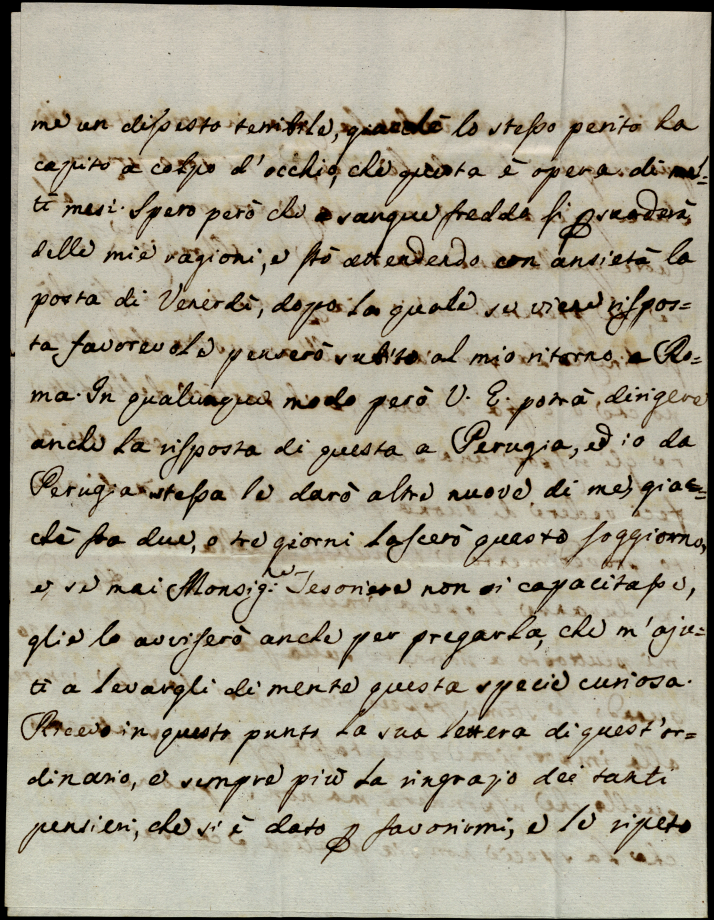 me un disgusto terribile, quando lo stesso perito ha
capito a colpo d'occhio, che questa è opera di mol=
ti mesi. Spero però che a sangue freddo si ꝑsuaderà
delle mie ragioni, e stò attendendo con ansietà la
posta di Venerdì, dopo la quale se viene rispos=
ta favorevole penserò subito al mio ritorno a Ro=
ma. In qualunque modo però V. E. potrà dirigere
anche la risposta di questa a Perugia, ed io da
Perugia stessa le darò altre nuove di me, giac=
chè fra due, o tre giorni lascerò questo soggiorno,
e se mai Monsig.re Tesoriere non si capacitasse,
glie lo avviserò anche per pregarla, che m'aju=
ti a levargli di mente questa specie curiosa.
Ricevo in questo punto la sua lettera di quest'or=
dinario, e sempre più la ringrazio dei tanti
pensieri, che si è dato ꝑ favorirmi, e le ripeto